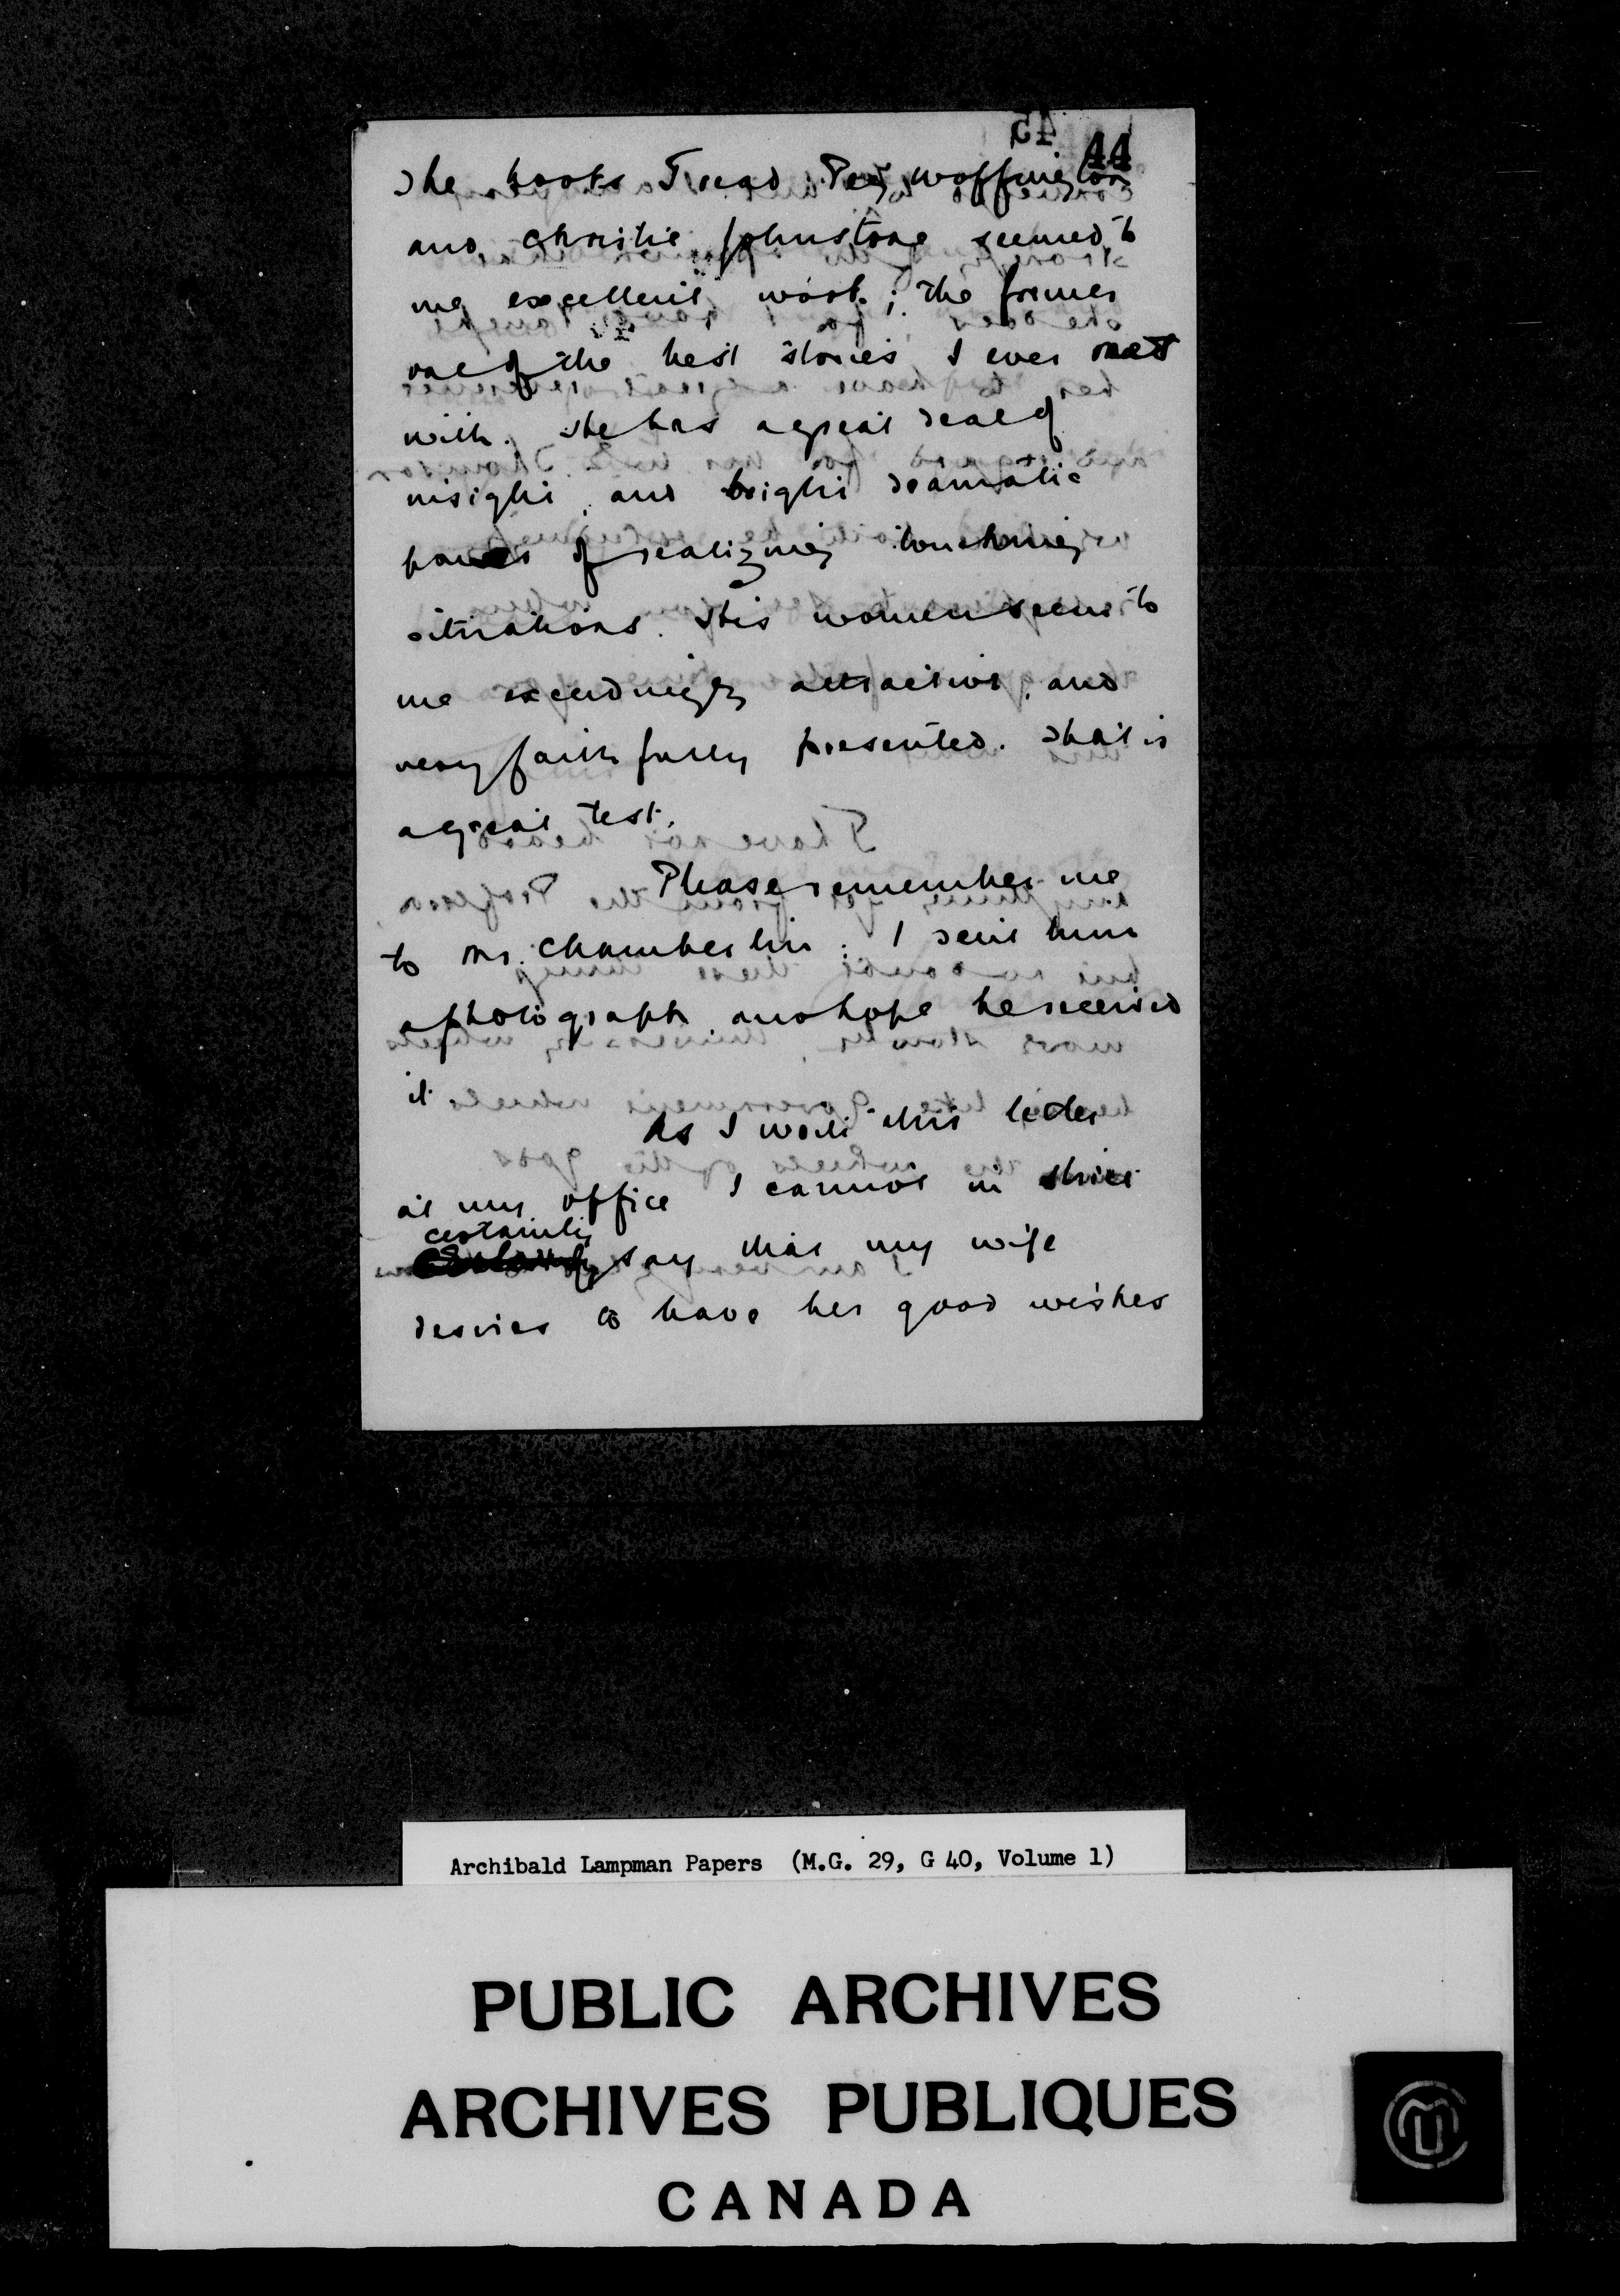 44
The books I read Peg Woffington
and Christie Johnstone seemed to
me excellent work; the former
one of the best stories I ever met
with. He has a great deal of
insight, and bright dramatic
power of realizing touching
situations. His women seem to
me exceedingly attractive, and
very faithfully presented. That is
a great test.
Please remember me
to Mr. Chamberlin; I sent him
a photograph and hope he received
it.
As I write this letter
at my office I cannot in strict
certainty
say that my wife
desires to have her good wishes
Archibald Lampman Papers (M.G. 29, G 40, Volume 1)
PUBLIC ARCHIVES
ARCHIVES PUBLIQUES
CANADA